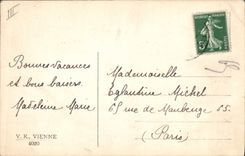 III
Bonnes vacances
et bons baisers.
Madeleine Marie
Mademoiselle
Eglantine Michel
65 rue de Maubeuge 55.
(Paris)
V. K., VIENNE
4020
5